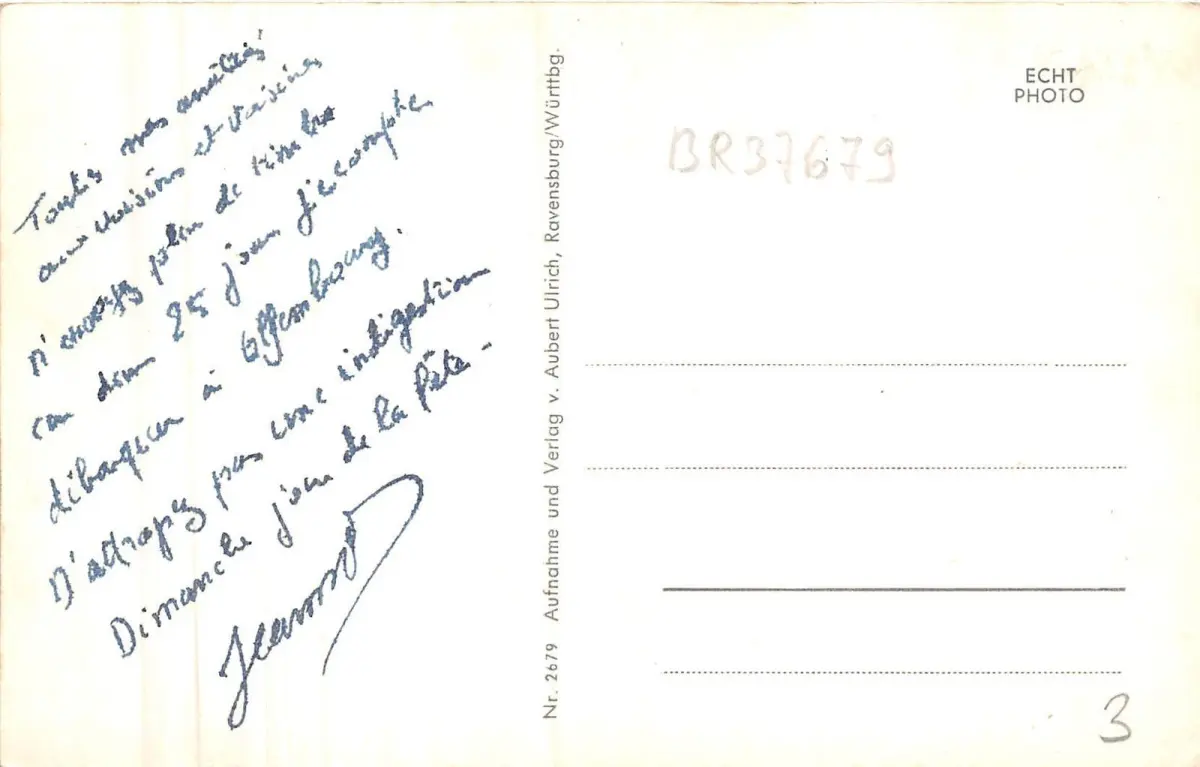 Toutes mes amitiés
aux voisins et voisines
N'envoyez plus de timbre
car dans 25 jours je compte
débarquer à Offembourg.
N'attrapez pas une indigestion
Dimanche jour de la fête -
Jeannot
Nr. 2679 Aufnahme und Verlag v. Aubert Ulrich, Ravensburg/Württbg.
ECHT
PHOTO
BR37679
3